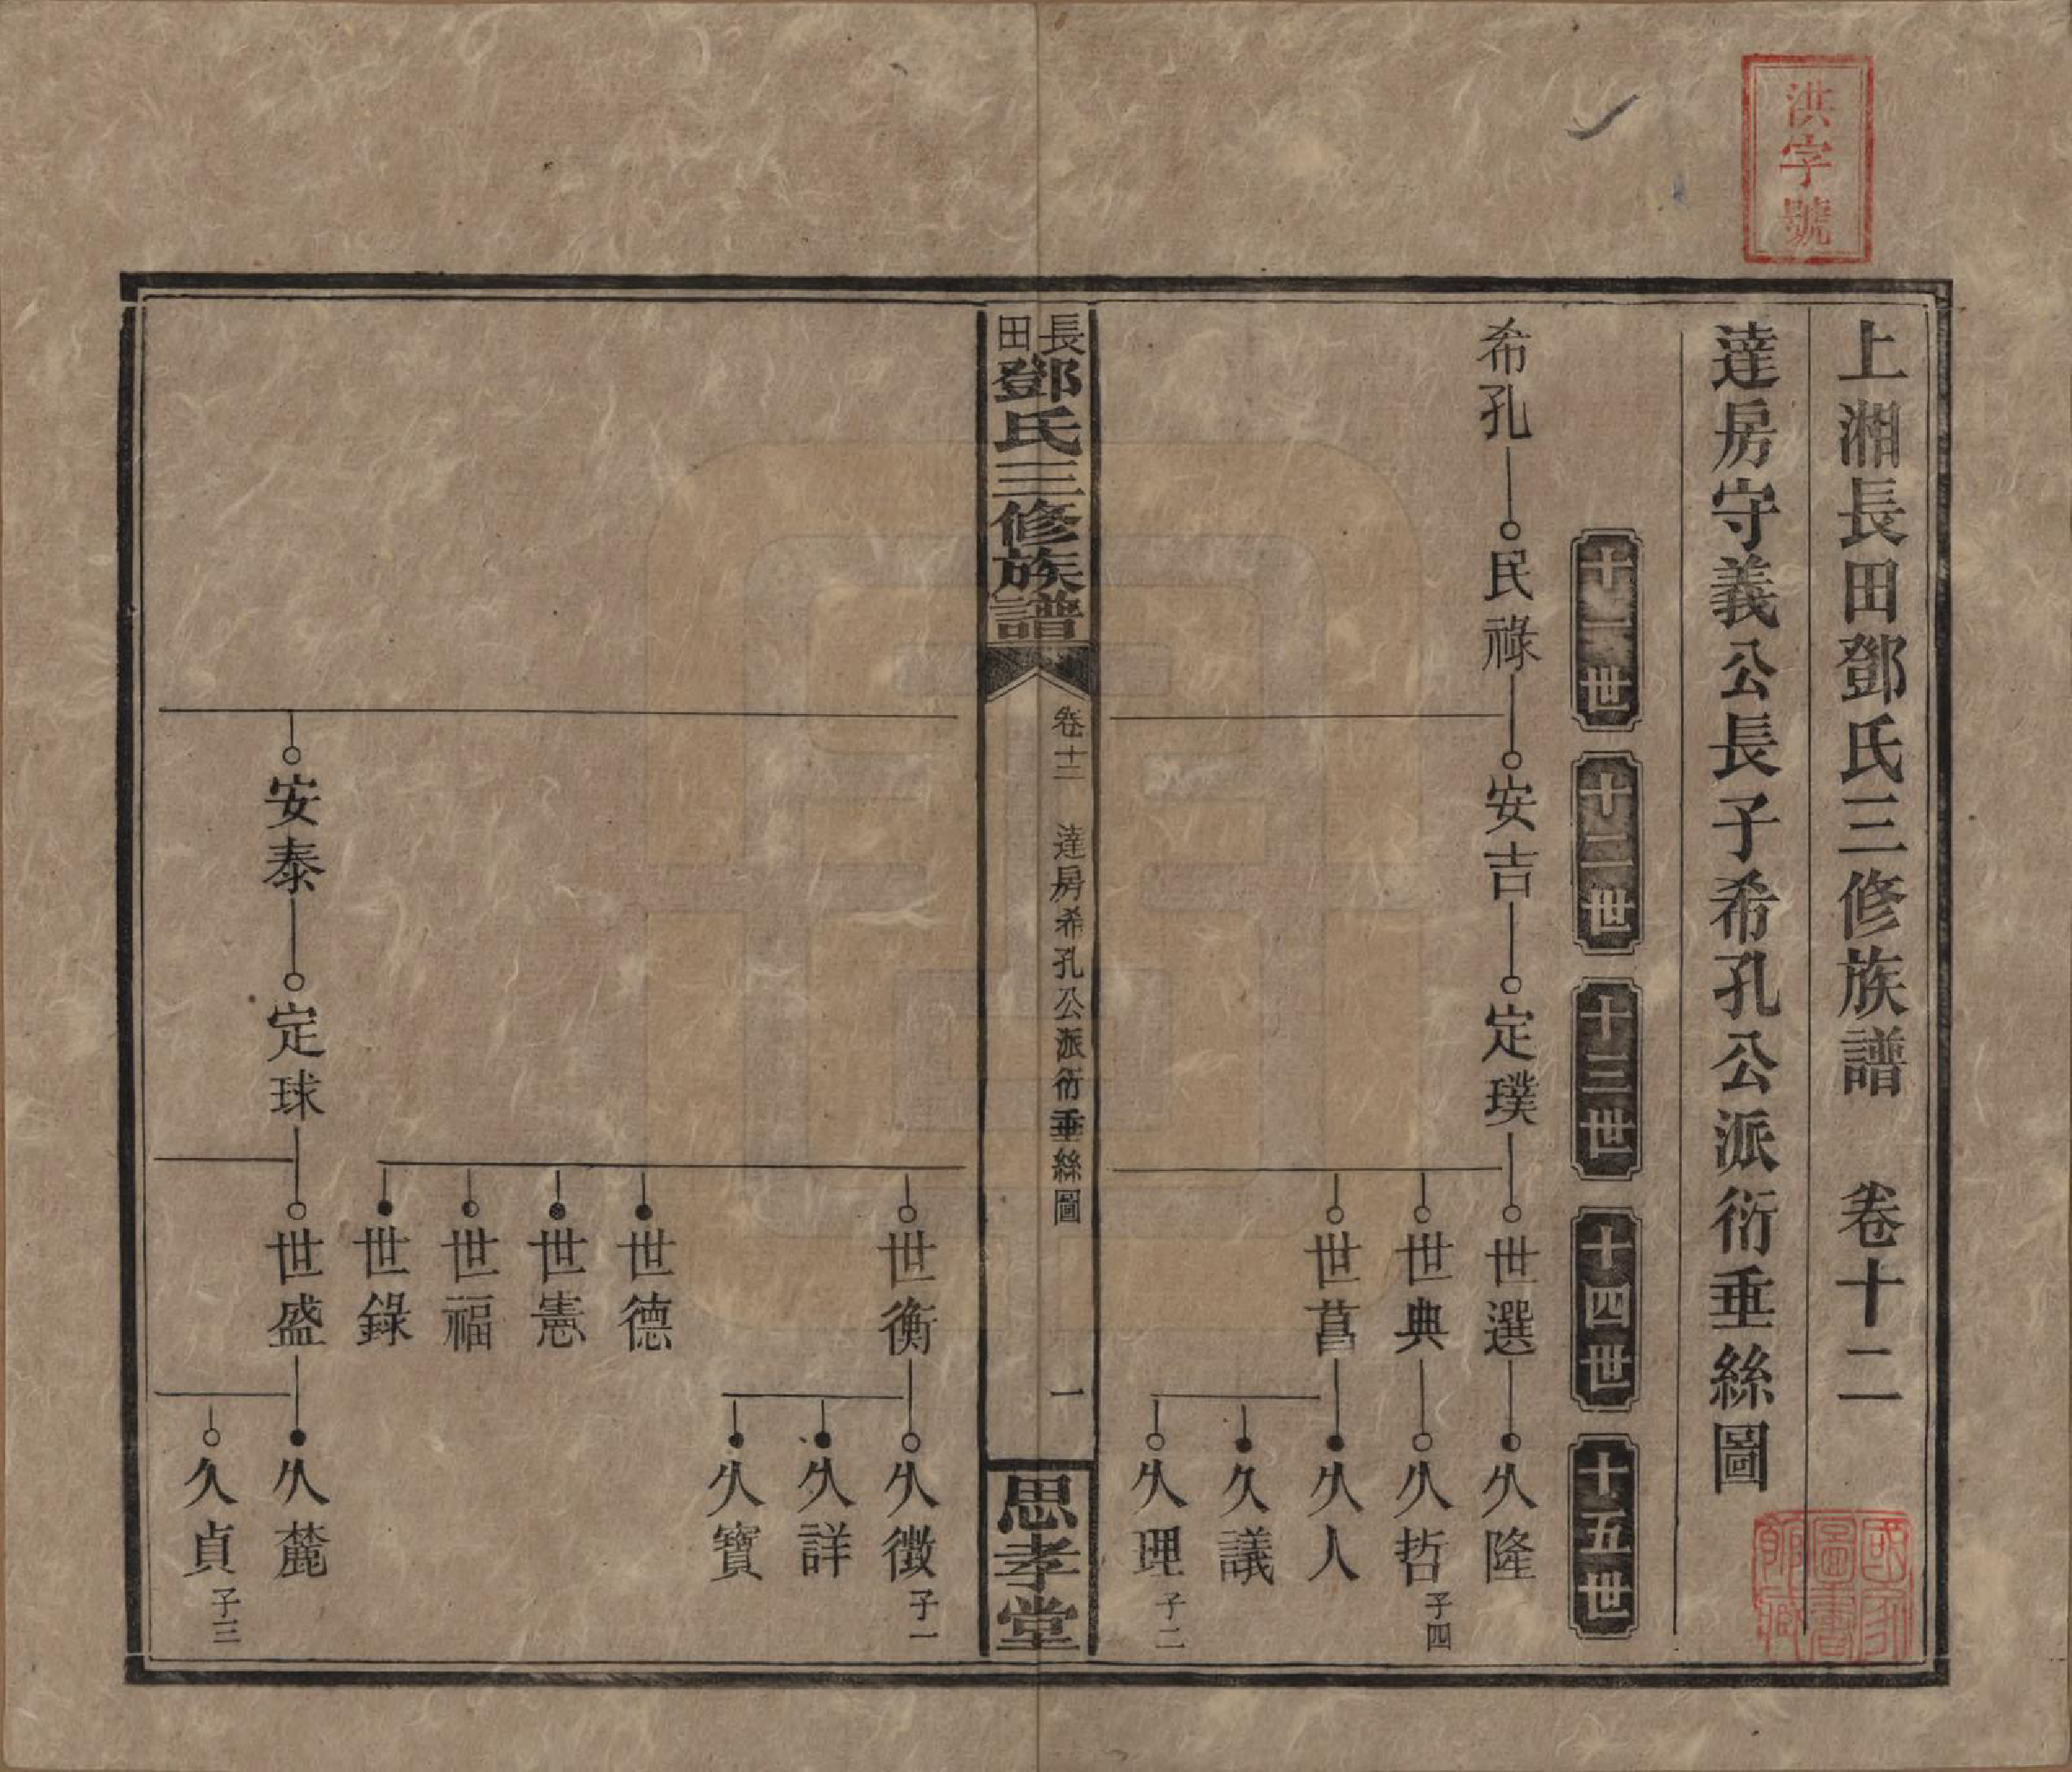 洪字號
上湘長田鄧氏三修族譜 卷十二
達房守義公長子希孔公派衍垂絲圖
十一世
十二世
十三世
十四世
十五世
希孔
民祿
安吉
定璞
世選
久隆
世典
久哲 子四
世菖
久人
久議
久理 子二
長田鄧氏三修族譜
卷十二 達房希孔公派衍垂絲圖
一
思孝堂
世衡
久徵 子一
久詳
久寶
世德
世憲
世福
世錄
安泰
定球
世盛
久麓
久貞 子三
國家圖書館藏